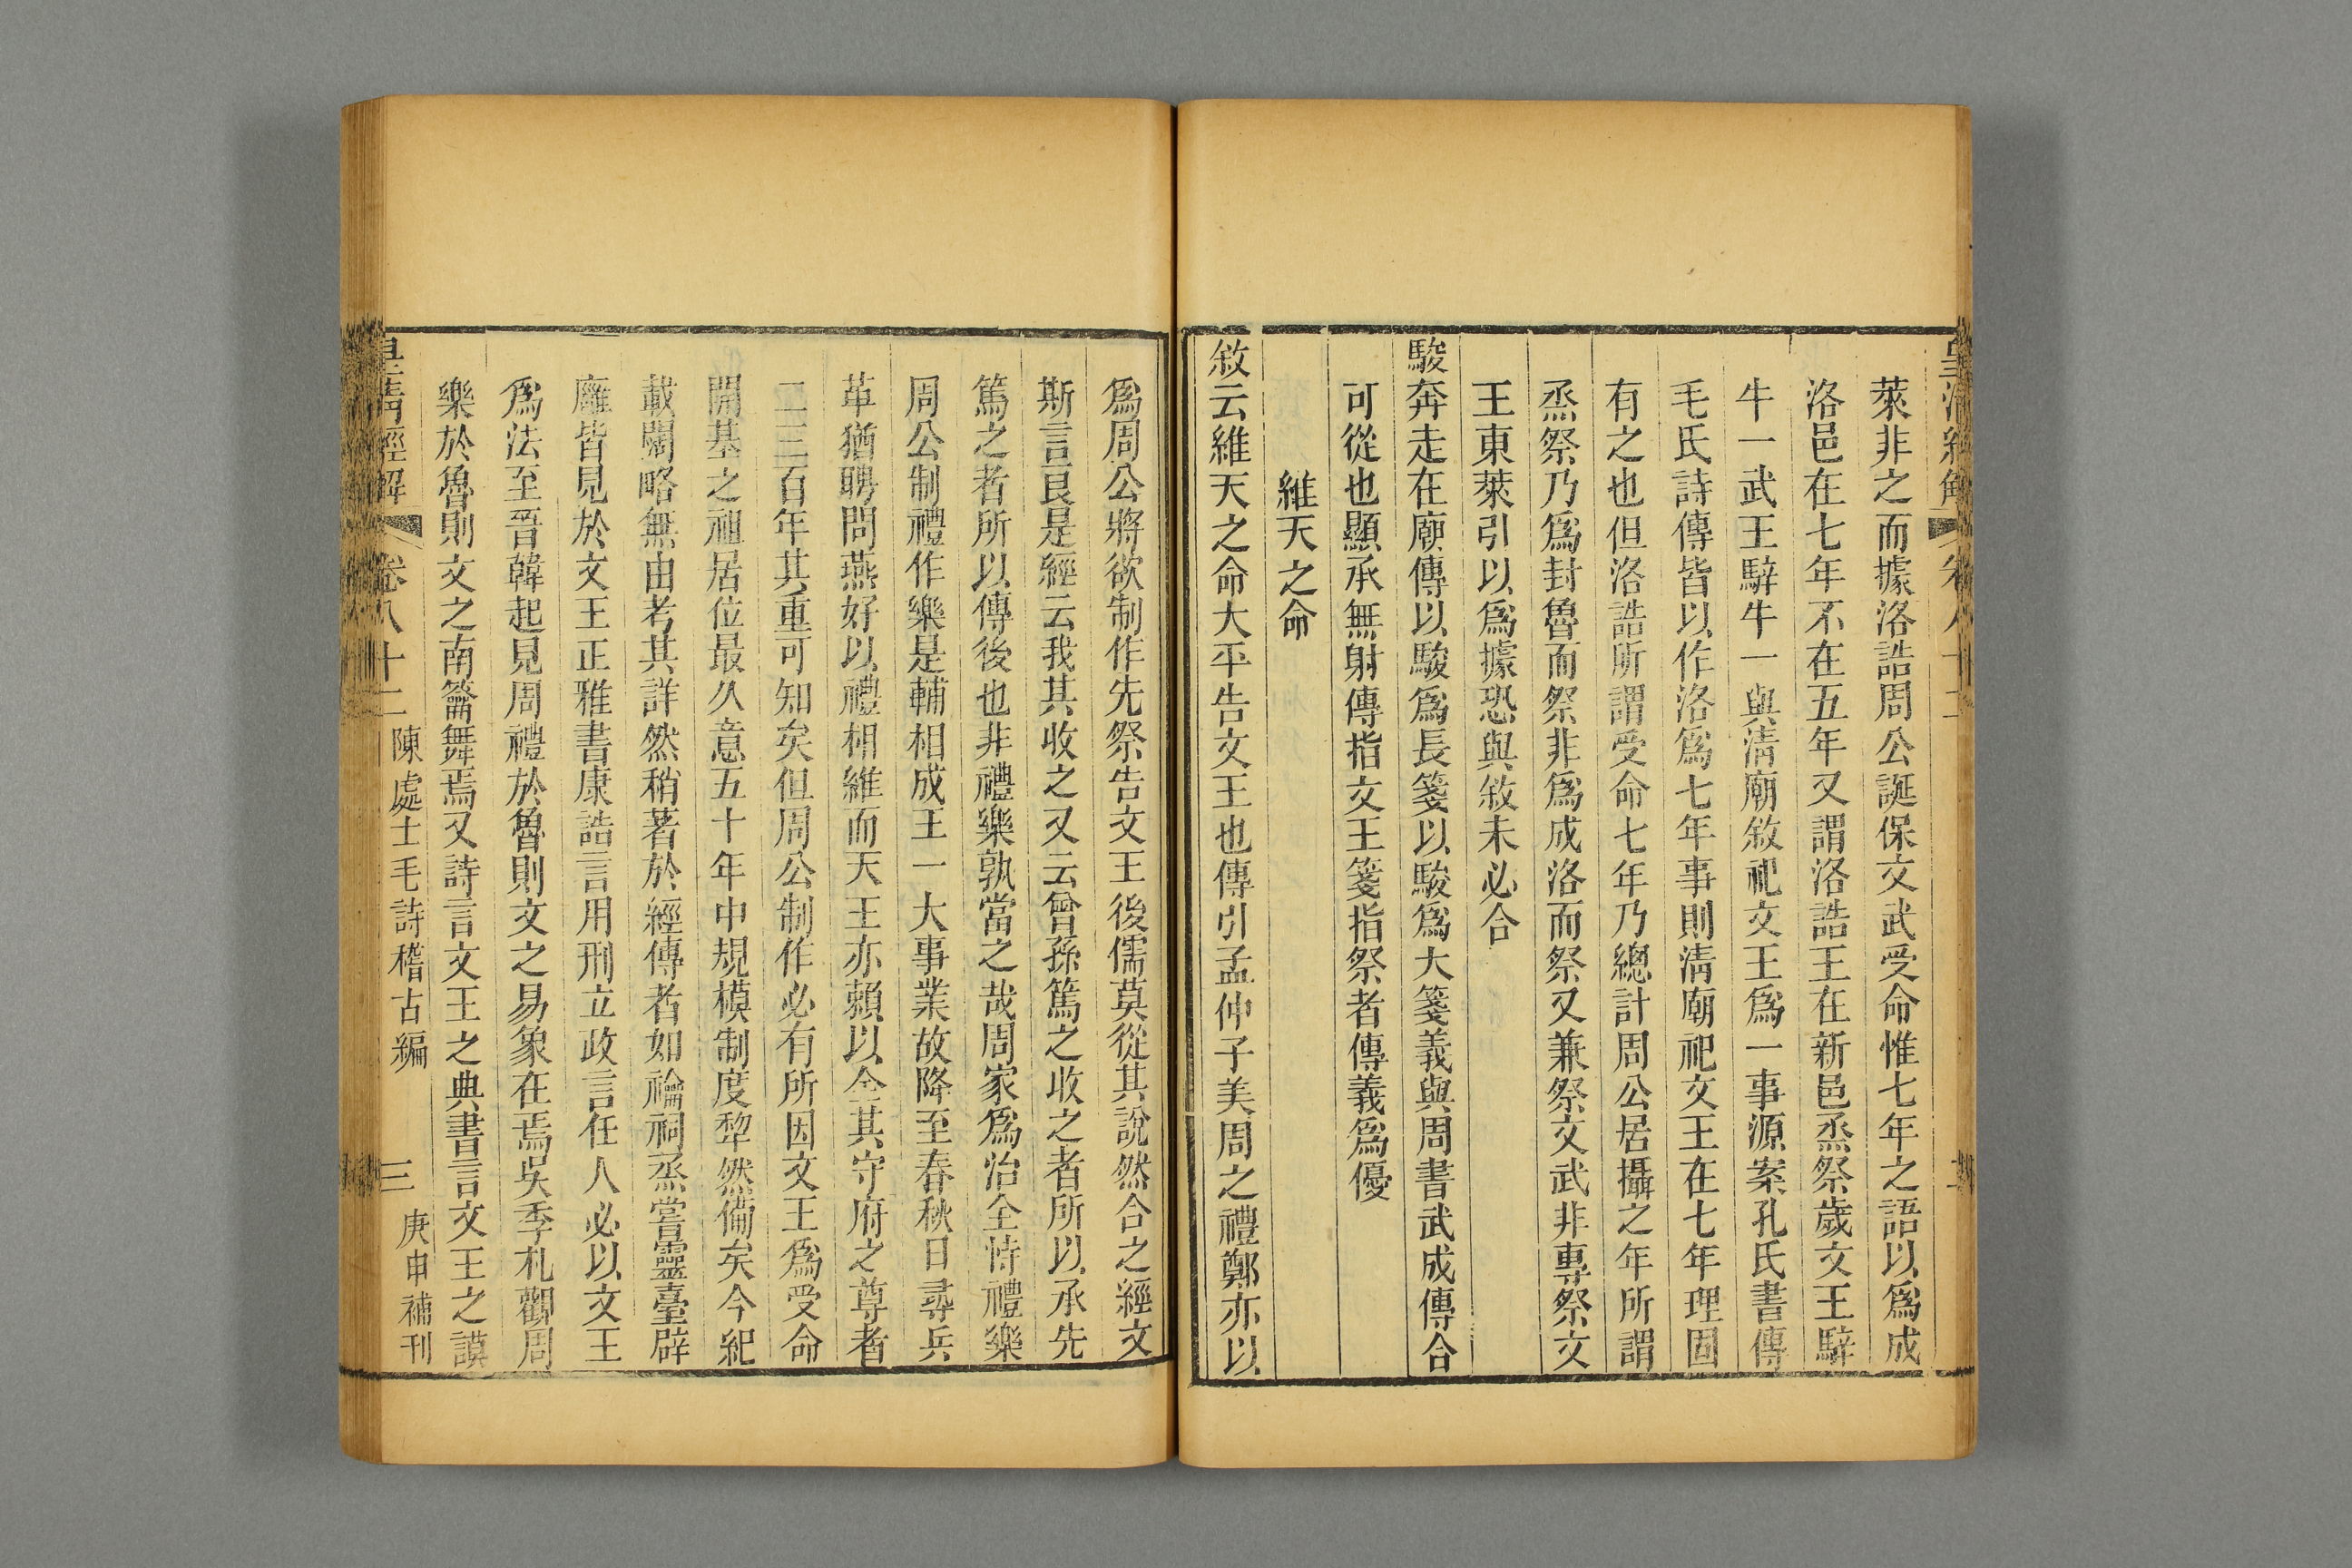 萊非之而據洛誥周公誕保文武受命惟七年之語以爲成
洛邑在七年不在五年又謂洛誥王在新邑烝祭歲文王騂
牛一武王騂牛一與淸廟敘祀文王爲一事源案孔氏書傳
毛氏詩傳皆以作洛爲七年事則淸廟祀文王在七年理固
有之也但洛誥所謂受命七年乃總計周公居攝之年所謂
烝祭乃爲封魯而祭非爲成洛而祭又兼祭文武非專祭文
王東萊引以爲據恐與敘未必合
駿奔走在廟傳以駿爲長箋以駿爲大箋義與周書武成傳合
可從也顯承無射傳指文王箋指祭者傳義爲優
維天之命
敘云維天之命大平告文王也傳引孟仲子美周之禮鄭亦以
爲周公將欲制作先祭告文王後儒莫從其說然合之經文
斯言良是經云我其收之又云曾孫篤之收之者所以承先
篤之者所以傳後也非禮樂孰當之哉周家爲治全恃禮樂
周公制禮作樂是輔相成王一大事業故降至春秋日尋兵
革猶聘問燕好以禮相維而天王亦賴以全其守府之尊者
二三百年其重可知矣但周公制作必有所因文王爲受命
開基之祖居位最久意五十年中規模制度犂然備矣今紀
載闊略無由考其詳然稍著於經傳者如禴祠烝嘗靈臺辟
廱皆見於文王正雅書康誥言用刑立政言任人必以文王
爲法至晉韓起見周禮於魯則文之易象在焉吳季札觀周
樂於魯則文之南籥舞焉又詩言文王之典書言文王之謨
皇淸經解 卷八十二 陳處士毛詩稽古編 三 庚申補刊